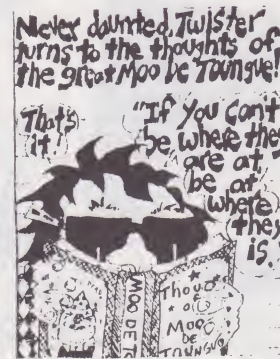 Never daunted, Twister
turns to the thoughts of
the great Moo De Toungue!
That's
it!
"If you can't
be where the
are at
be at
where
they
is.
MOO DE TO
Thoug
o
MOO
DE
TOUNGUE